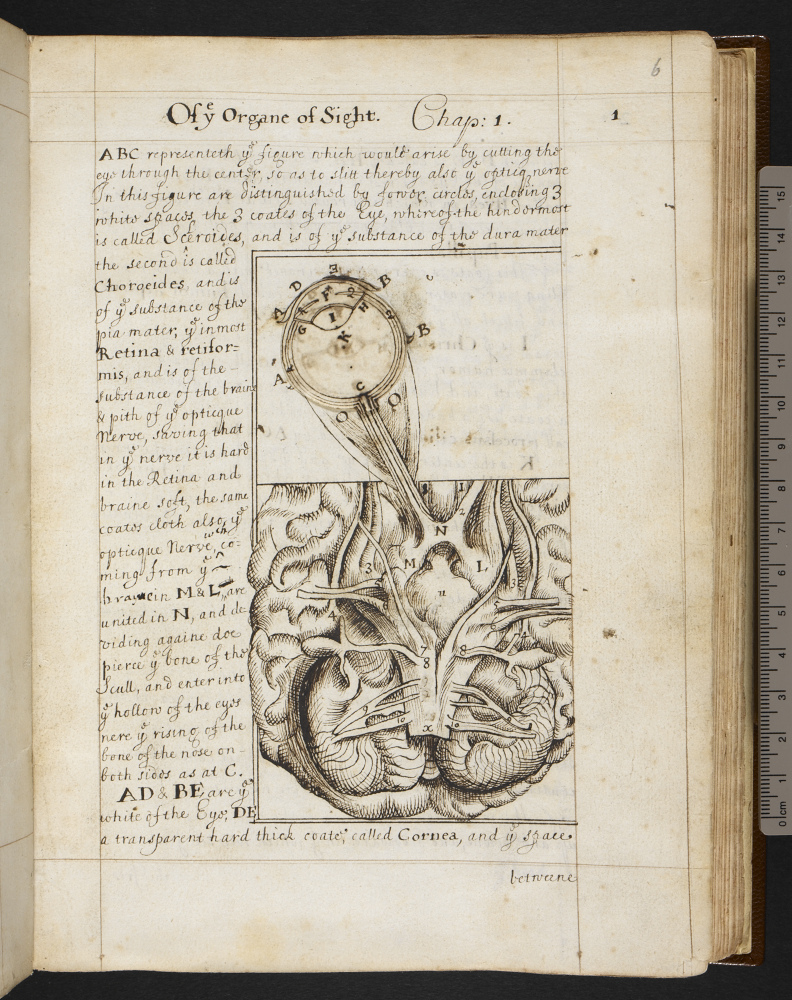 6
Of yᵉ Organe of Sight. Chap: 1. 1
ABC representeth yᵉ figure which would arise by cutting the
eye through the center, so as to slitt thereby also yᵉ opticq nerve
In this figure are distinguished by fower circles, enclosing 3
white spaces, the 3 coates of the Eye, whireof the hindermost
is called Sceroides, and is of yᵉ substance of the dura mater
the second is called
Choroeides, and is
of yᵉ substance of the
pia mater, yᵉ inmost
Retina & retifor=
mis, and is of the
substance of the braine
& pith of yᵉ opticque
Nerve, saving that
in yᵉ nerve it is hard
in the Retina and
braine soft, the same
coates cloth also yᵉ
opticque Nerve, wᶜʰ co=
ming from yᵉ
braine in M & L, are
united in N, and de
viding againe doe
pierce yᵉ bone of the
Scull, and enter into
yᵉ hollow of the eyes
nere yᵉ rising of the
bone of the nose on-
both sides as at C.
AD & BE are yᵉ
white of the Eye, DE
a transparent hard thick coate, called Cornea, and yᵉ space
betweene
E
D B
A F 2
G I H
K B
A C
O O
N 2
M L
3 3
u
4 4
7 8
8
9 9
10 10
x
0 cm 1 2 3 4 5 6 7 8 9 10 11 12 13 14 15